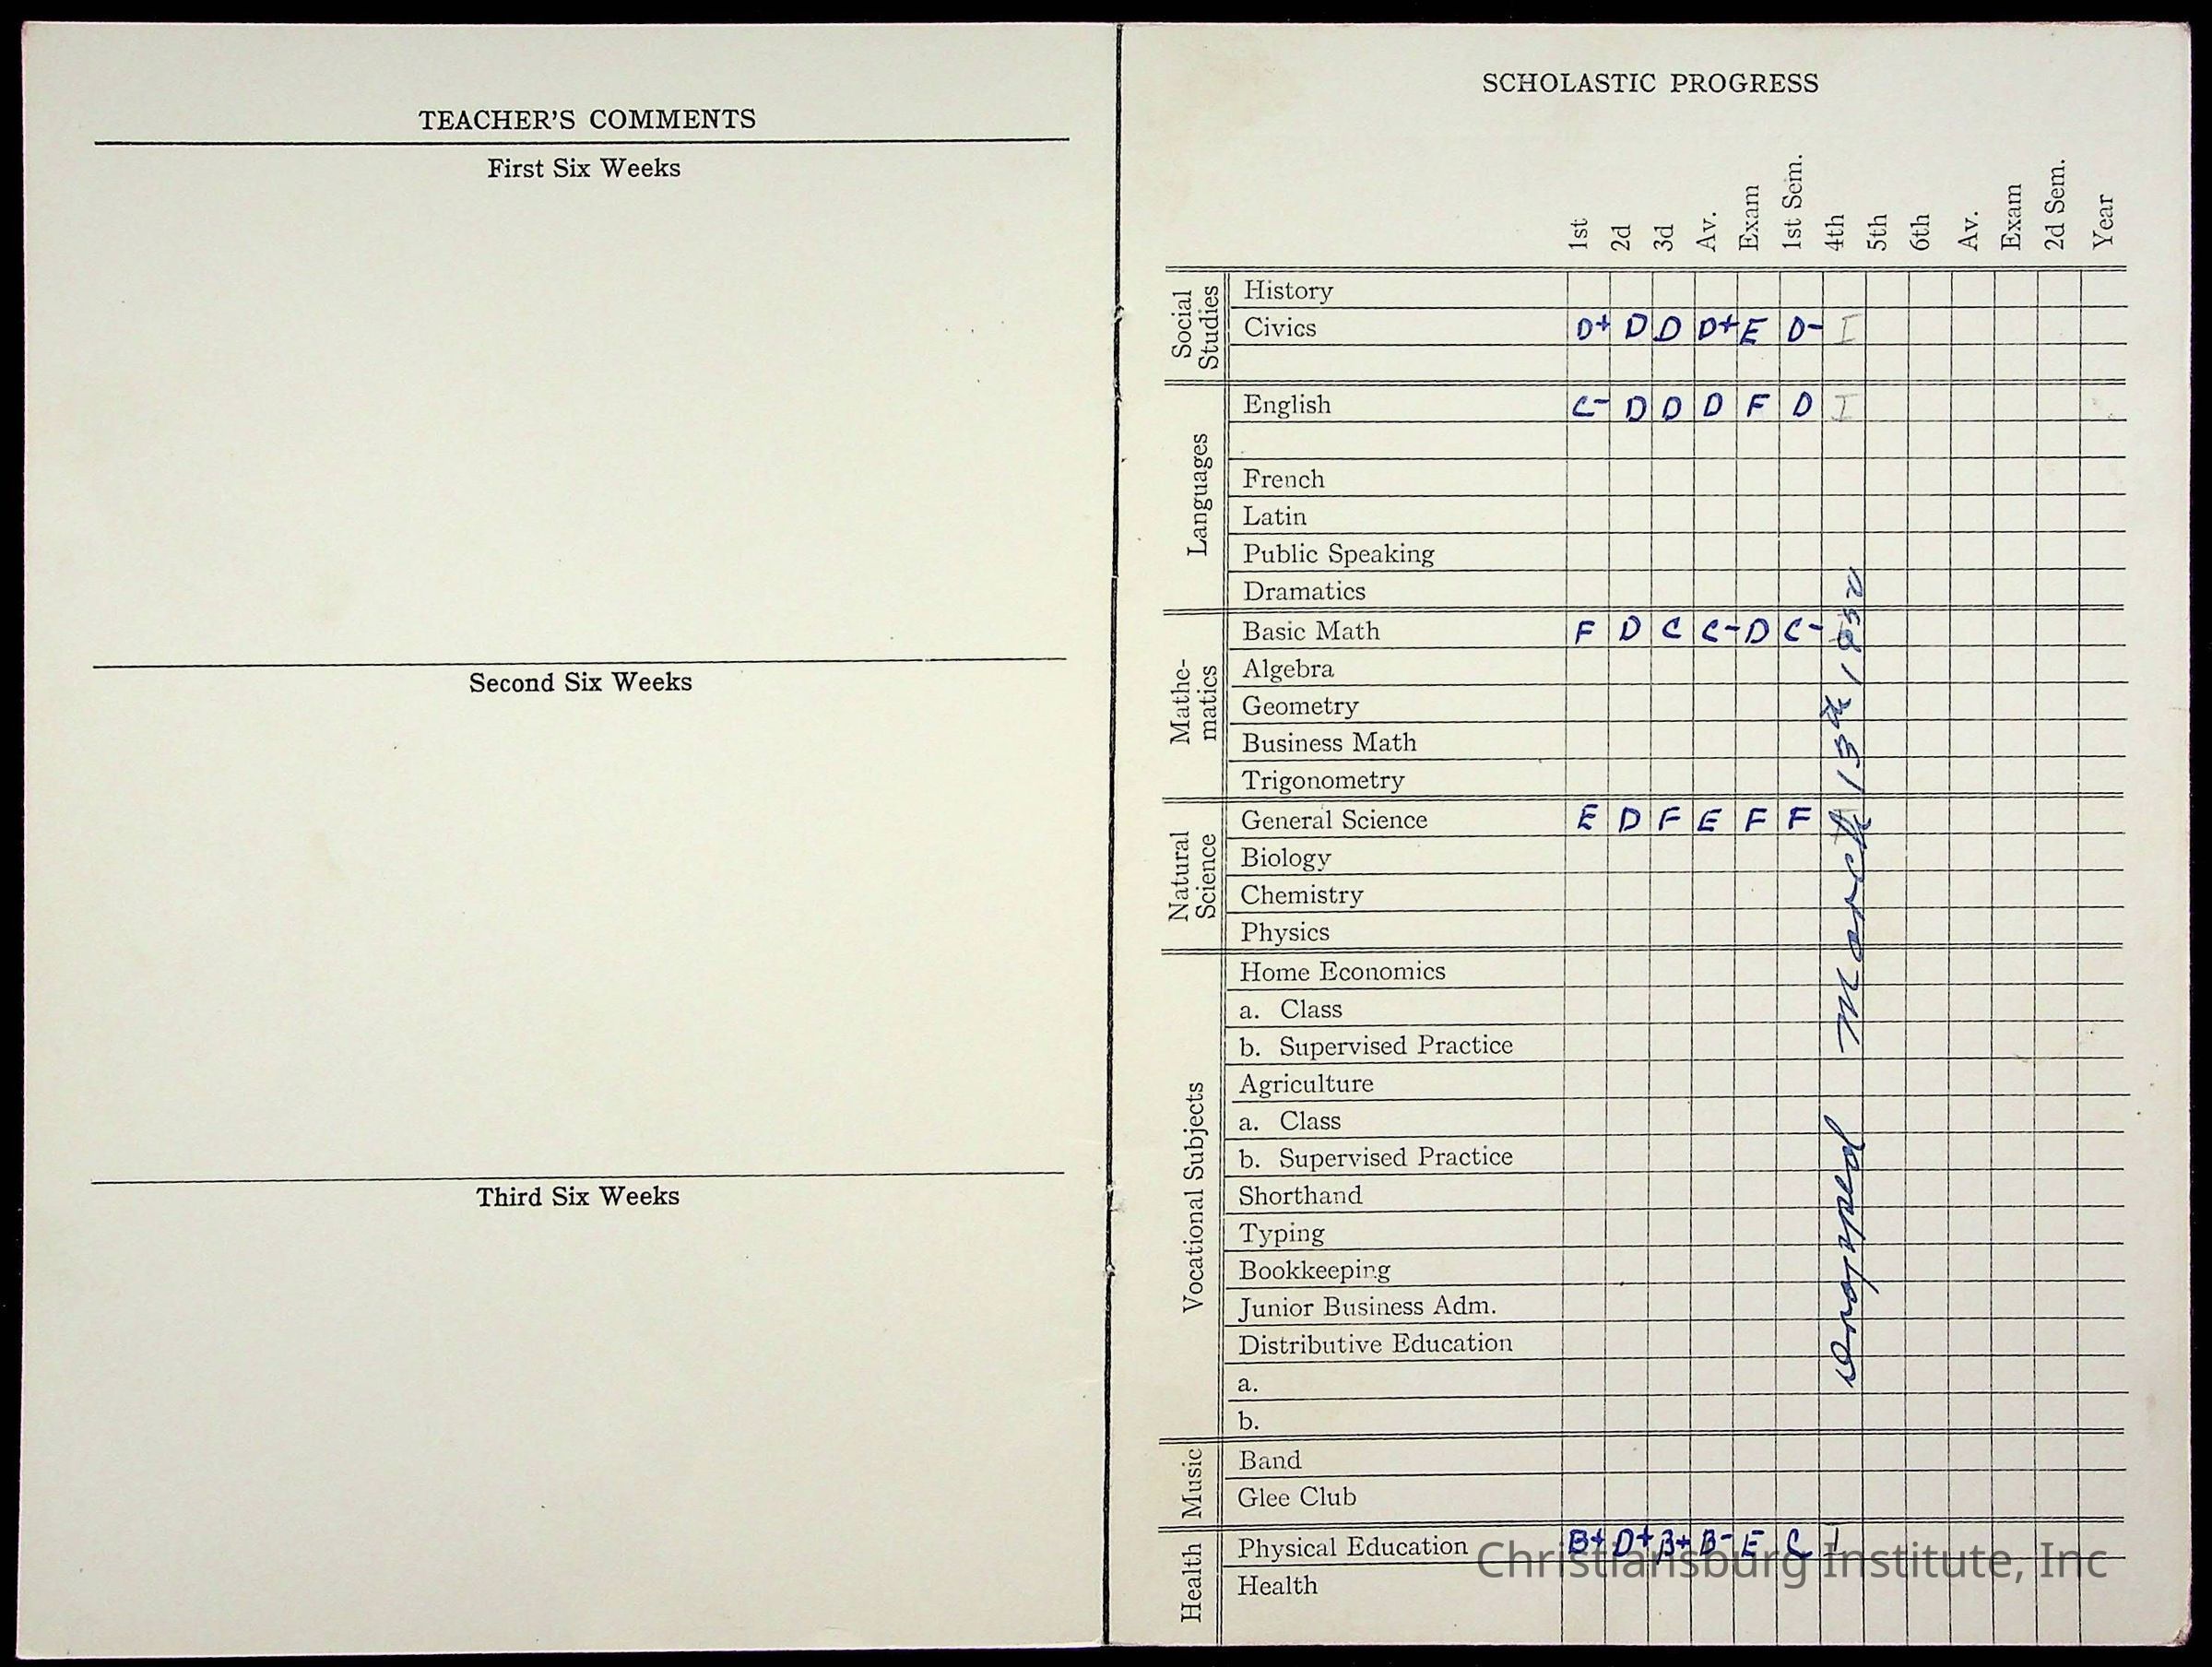 TEACHER'S COMMENTS
First Six Weeks
Second Six Weeks
Third Six Weeks
SCHOLASTIC PROGRESS
1st 2d 3d Av. Exam 1st Sem. 4th 5th 6th Av. Exam 2d Sem. Year
Social Studies
History
Civics D+ D D D+ E D- I
Languages
English C- D D D F D I
French
Latin
Public Speaking
Dramatics
Mathe-
matics
Basic Math F D C C- D C-
Algebra
Geometry
Business Math
Trigonometry
Natural Science
General Science E D F E F F
Biology
Chemistry
Physics
Vocational Subjects
Home Economics
a. Class
b. Supervised Practice
Agriculture
a. Class
b. Supervised Practice
Shorthand
Typing
Bookkeeping
Junior Business Adm.
Distributive Education
a.
b.
Dropped March 13th
Music
Band
Glee Club
Health
Physical Education B+ D+ B+ B- E C I
Health
Christiansburg Institute, Inc